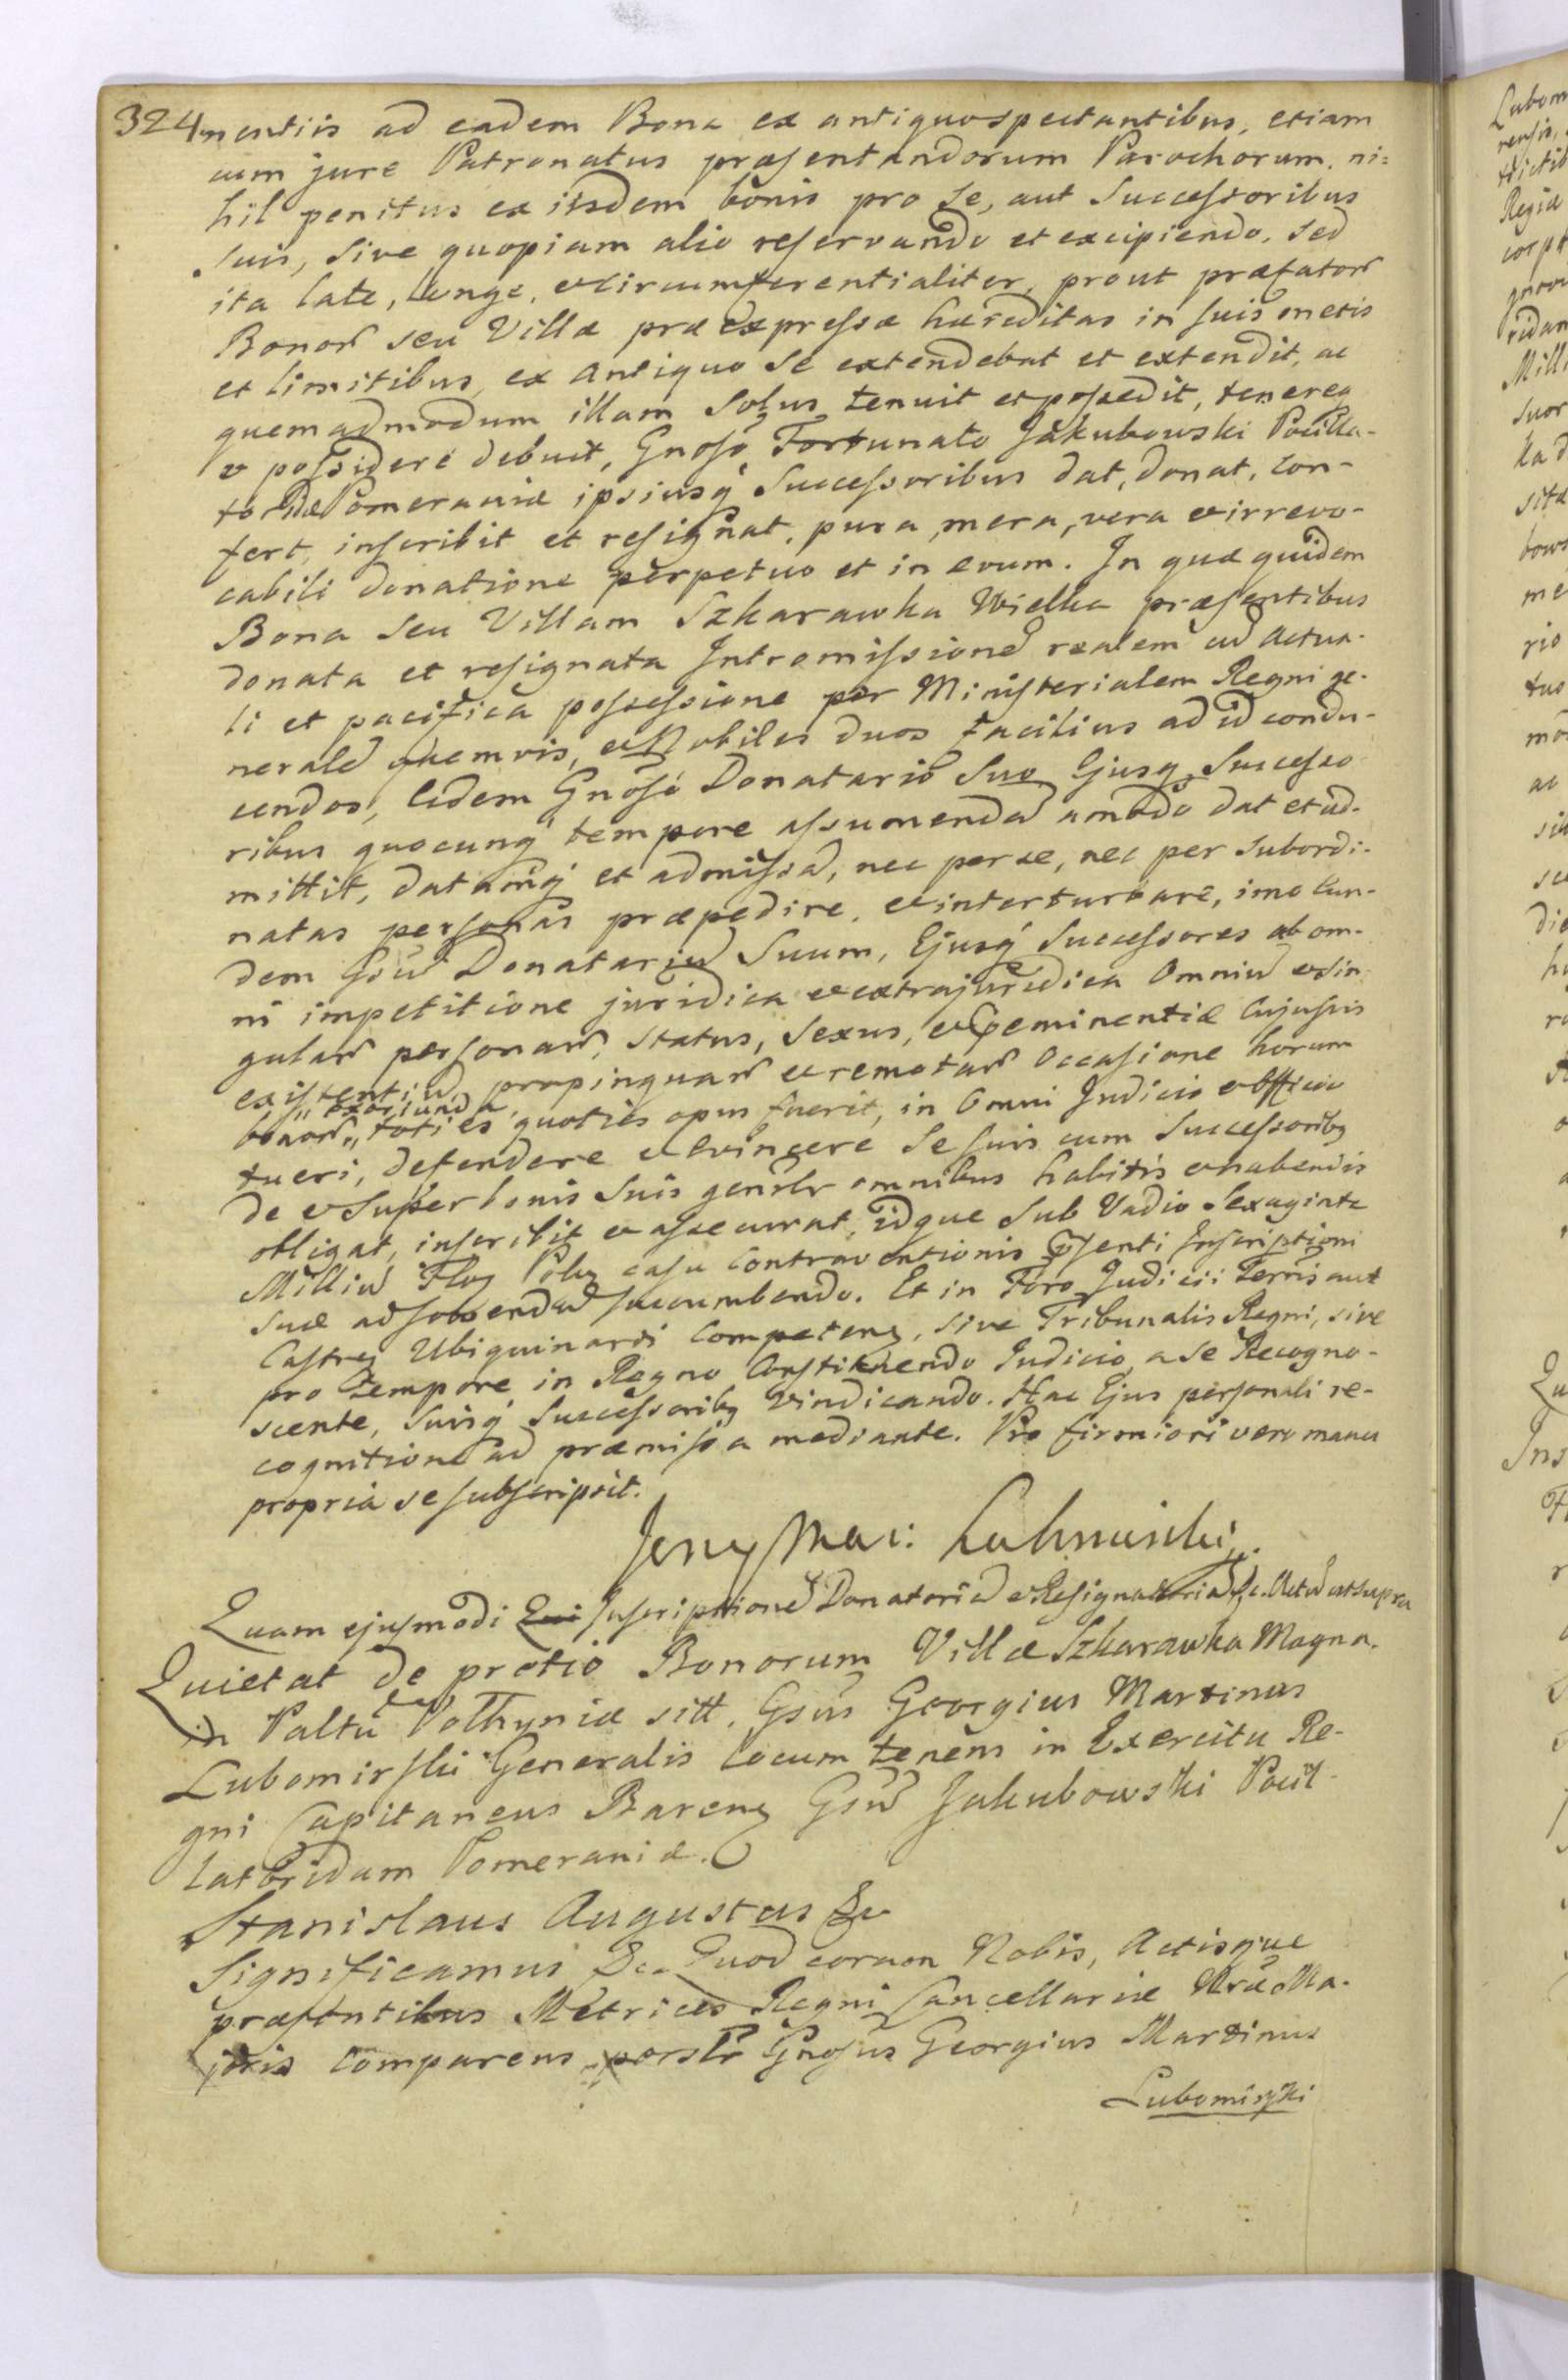 324
mentiis ad eadem Bona ex antiquo spectantibus, etiam
cum jure Patronatus præsentandorum Parochorum, ni=
hil penitus ex iisdem bonis pro se, aut Successoribus
suis, sive quopiam alio reservando et excipiendo. sed
ita late, longe, et circumferentialiter, prout præfator̃
Bonor̃ seu Villæ præexpressæ hæreditas in suis metis
et limitibus, ex antiquo se extendebat et extendit, ac
quemadmodum illam Solus tenuit et possedit, tenereq̃
et possidere debuit, Gnoso Fortunato Jakubowski Pocilla-
tori Pomeraniæ ipsiusq́ Successoribus dat, donat, con-
fert, inscribit et resignat, pura, mera, vera et irrevo-
cabili donatione perpetuo et in evum. In quæ quidem
Bona seu Villam Szkarawka Wielka præsentibus
donata et resignata Intromissionẽ realem cũ actua-
li et pacifica possessione per Ministerialem Regni ge-
neralẽ quemvis, et Nobiles duos facilius ad id condu-
cendos, Eidem Gnoso Donatario Suo Ejusq̃ Successo
ribus quocunq́ tempore assumendã amodo dat et ad-
mittit, datamq́ et admissã, nec per se, nec per subordi-
natas personas præpedire, et interturbare, imo Eun-
dem Gsũ Donatariũ Suum, Ejusq́ Successores ab om-
ni impetitione juridica et extrajuridica Omniũ et sin-
gular̃ personar̃, status, sexus, et eminentiæ Cujusvis
existentiũ, propinquar̃ et remotar̃ Occasione horum
bonor̃, exoriunda, toties quoties opus fuerit, in Omni Judicio et Officio
tueri, defendere et evincere Se suis cum Successoribq
de et super bonis Suis genrlr omnibus habitis et habendis
obligat, inscribit et assecurat, idque Sub Vadio Sexaginta
Milliũ Flor Polq casu Contraventionis Psenti Inscriptioni
suæ adsolvendũ succumbendo. Et in Foro Judicii Terris aut
Castreq Ubiquinarii Competenq, sive Tribunalis Regni, sive
pro tempore in Regno Constituendo Judicio, a se Recogno-
scente, suisq́ Successoribq vindicando. Hac Ejus personali re-
cognitione ad præmissa mediante. Pro firmiori vero manu
propria se subscripsit.
Jerzy Mar: Lubomirski
Quam ejusmodi Inscriptionẽ Donatoriã et Resignatoriã &c. Actũ ut supra
Quietat de pretio Bonorum Villæ Szkarawka Magna.
in Paltũ Volhyniæ sitt. Gsus Georgius Martinus
Lubomirski Generalis Locum tenens in Exercitu Re-
gni Capitaneus Barenq Gsũ Jakubowski Pocil-
latoridam Pomeraniæ.
Stanislaus Augustus &c
Significamus &c. Quod coram Nobis, Actisque
præsentibus Metrices Regni Cancellariæ Nræ Ma-
joris Comparens perslr Gnosus Georgius Martinus
Lubomirski